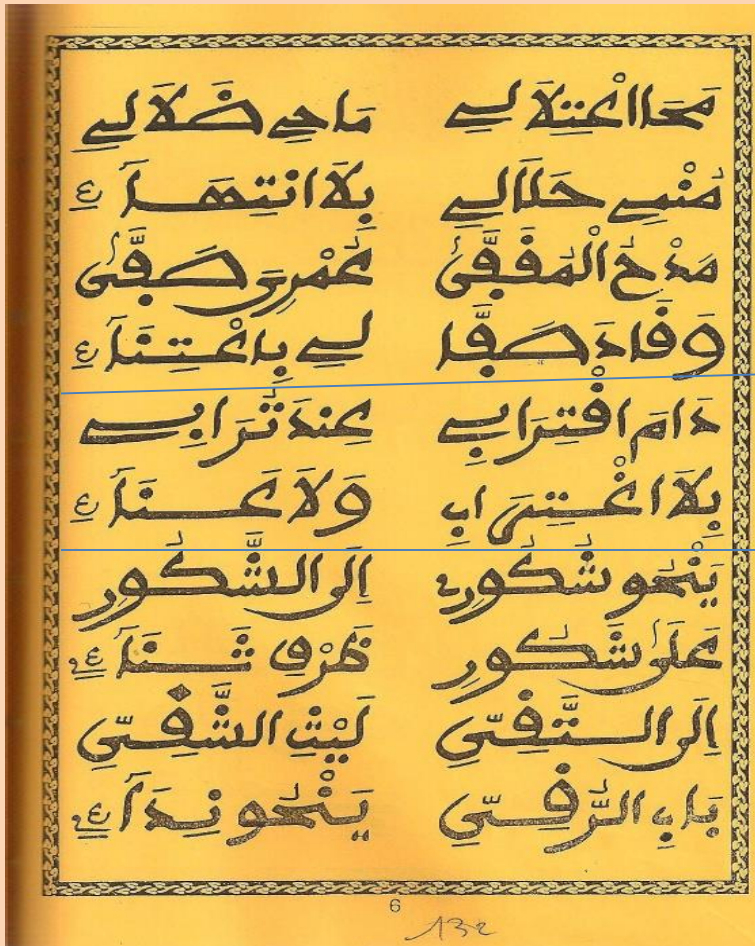 مَحَا اعْتِلَالِي مَاحِي ضَلَالِي
مُنْمِي حَلَالِي بِلَا انتِهَاءِ
مَدْحُ الْمُقَفَّى عُمْرِيَ صَفَّى
وَقَادَ صَفَّا لِي بِاعْتِنَاءِ
دَامَ اقْتِرَابِي عِندَ تُرَابِي
بِلَا اغْتِرَابِ وَلَا عَنَاءِ
يَنْحُو شُكُورِي إِلَى الشَّكُورِ
عَلَى شَكُورِ ظَرْفِ ثَنَاءِ
إِلَى التَّقِيِّ لَيْثِ الشَّقِيِّ
بَابِ الرُّقِيِّ يَنْحُو نِدَاءِ
6
132